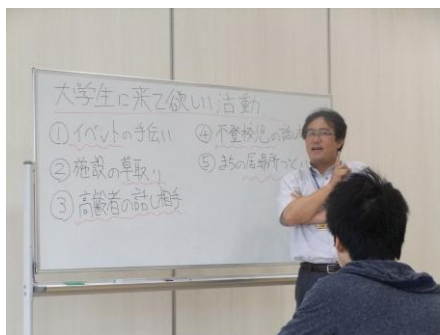 大学生に来て欲しい活動
① イベントの手伝い
② 施設の草取り
③ 高齢者の話し相手
④ 不登校児の話し
⑤ まちの居場所づくり